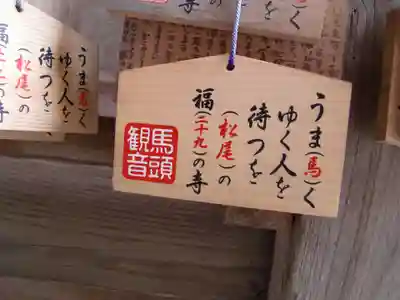 うま（馬）く
ゆく人を
待つを
（松尾）の
福（二十九）の寺
馬頭
観音
うま（馬）く
ゆく人を
待つを
（松尾）の